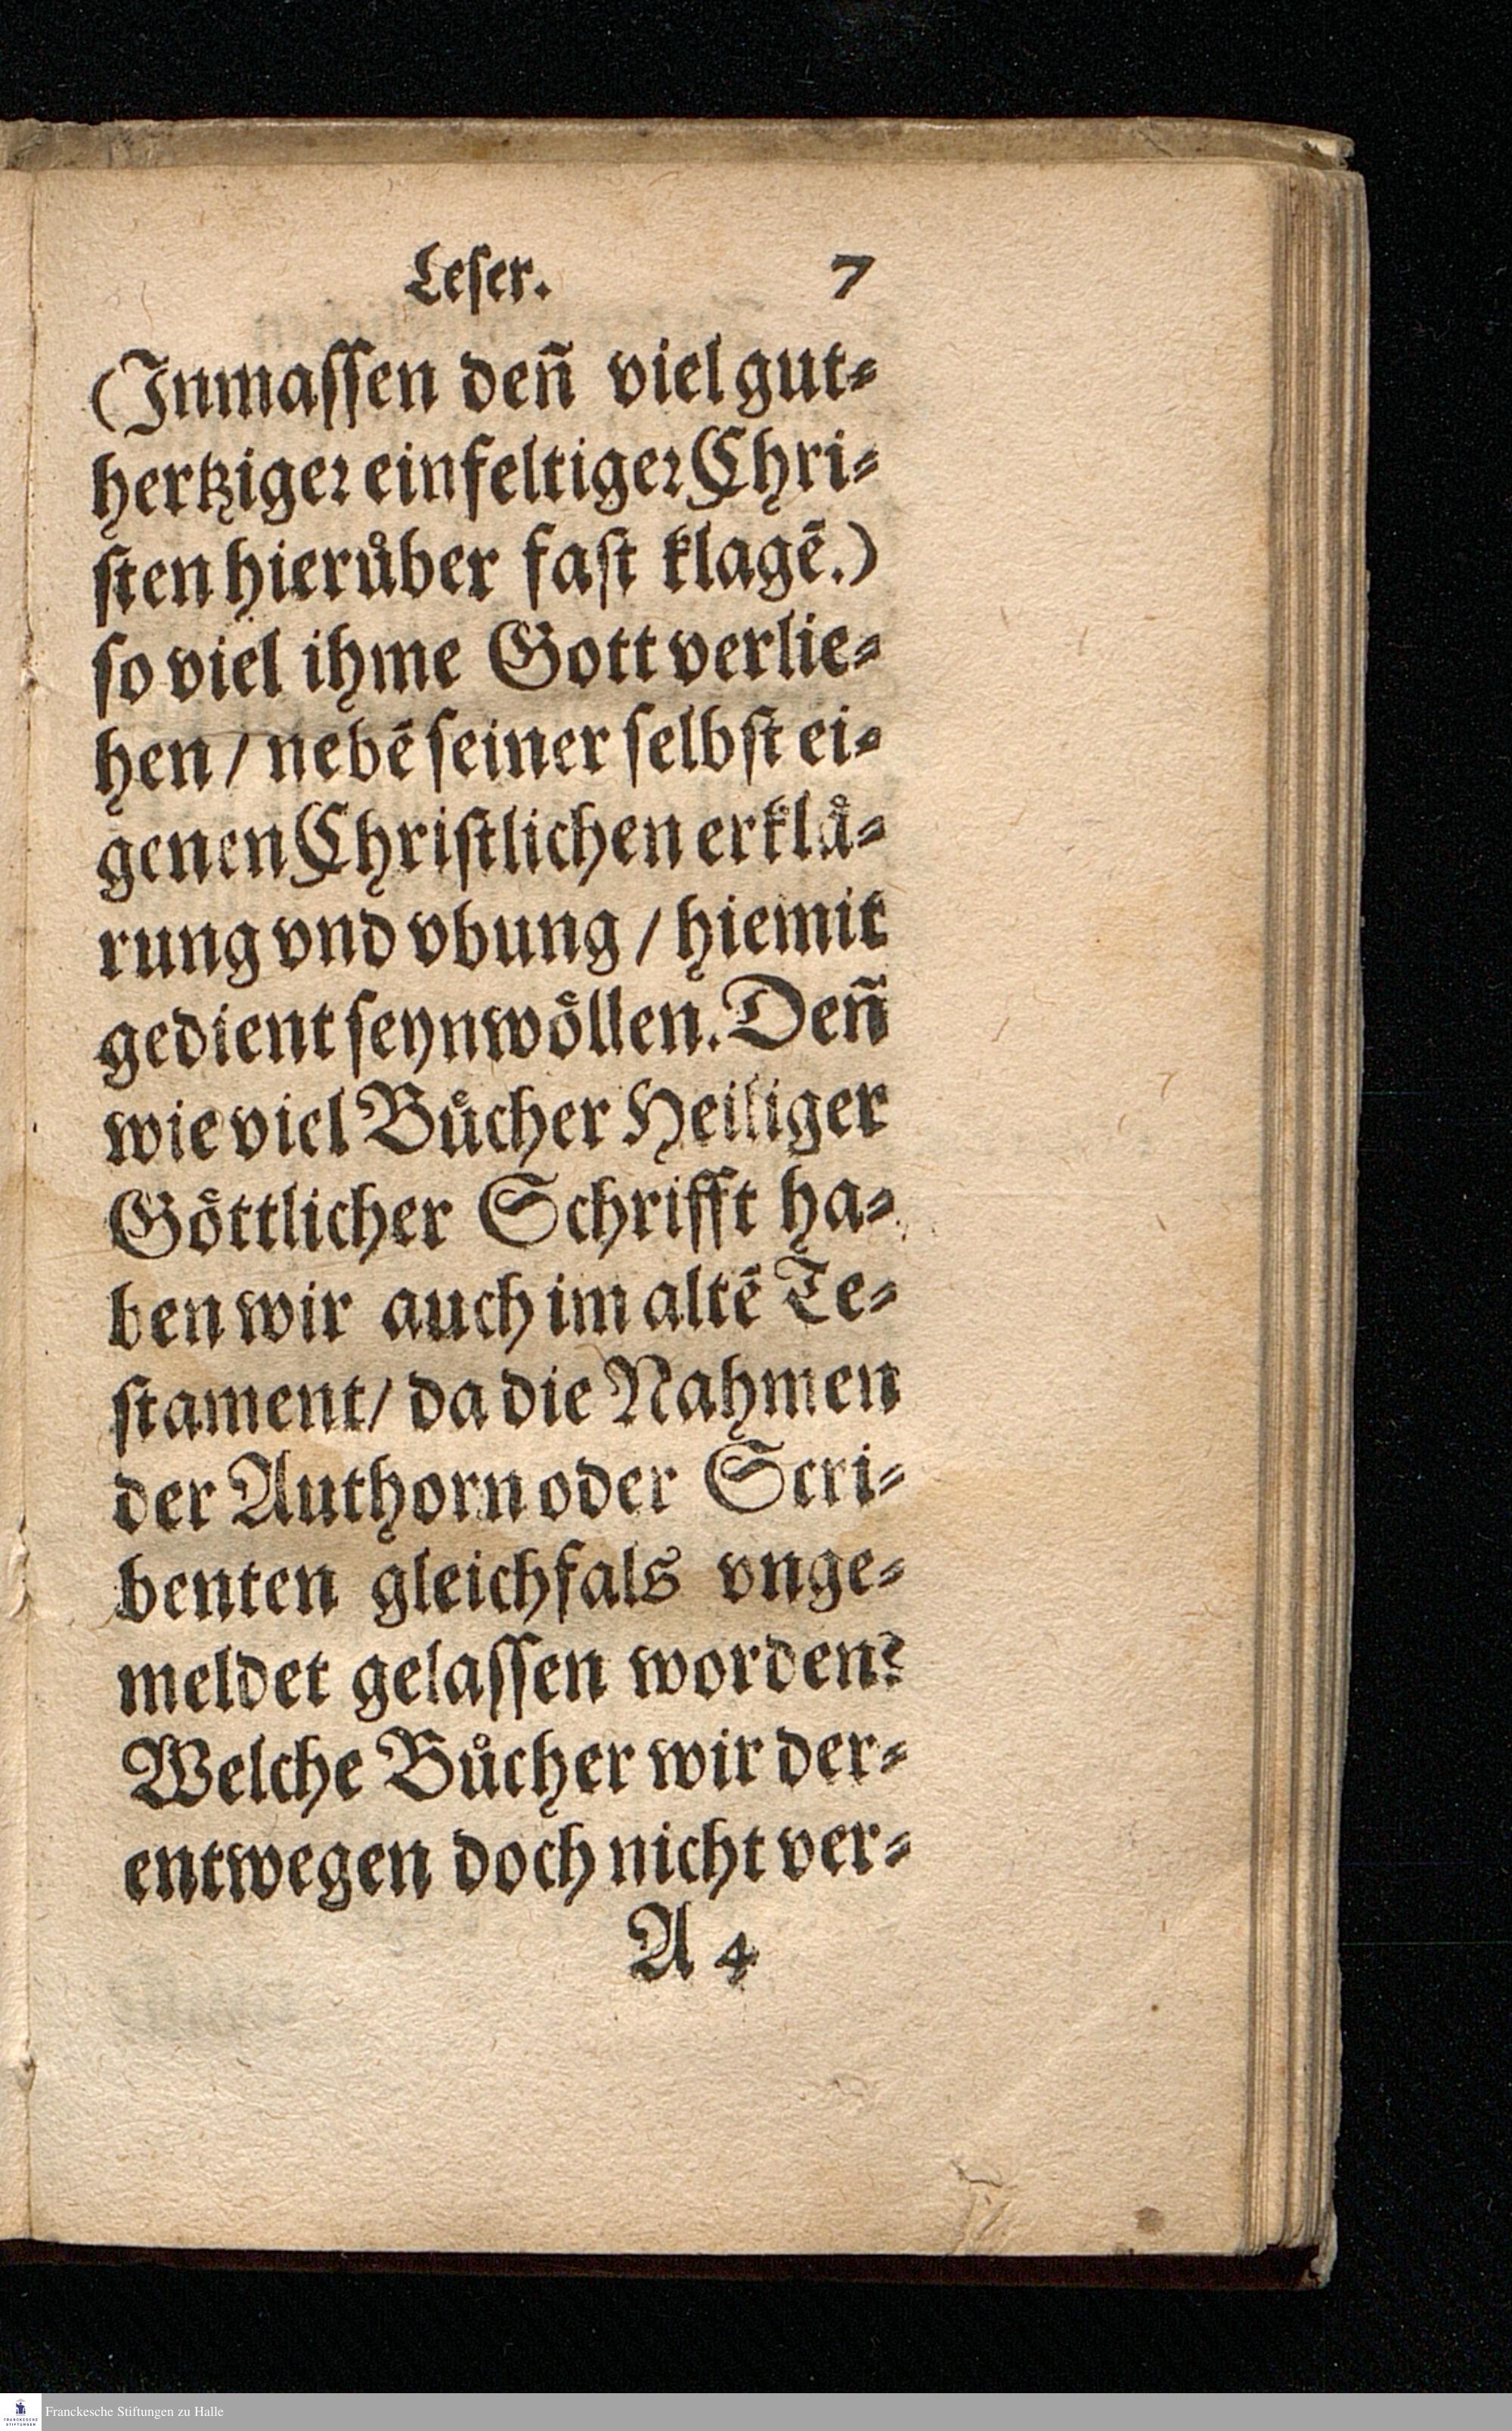 Leſer. 7
(Inmaſſen deñ viel gut⸗
hertziger einfeltiger Chri⸗
ſten hieruͤber faſt klagẽ.)
ſo viel ihme Gott verlie⸗
hen / nebẽ ſeiner ſelbſt ei⸗
genen Chriſtlichen erklaͤ⸗
rung vnd vbung / hiemit
gedient ſeyn woͤllen. Deñ
wie viel Buͤcher Heiliger
Goͤttlicher Schrifft ha⸗
ben wir auch im altẽ Te⸗
ſtament / da die Nahmen
der Authorn oder Scri⸗
benten gleichfals vnge⸗
meldet gelaſſen worden?
Welche Buͤcher wir der⸗
entwegen doch nicht ver⸗
A 4
Franckesche Stiftungen zu Halle
FRANCKESCHE
STIFTUNGEN